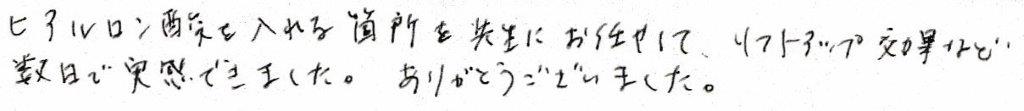 ヒアルロン酸を入れる箇所を先生にお任せして、リフトアップ効果など
数日で実感できました。 ありがとうございました。